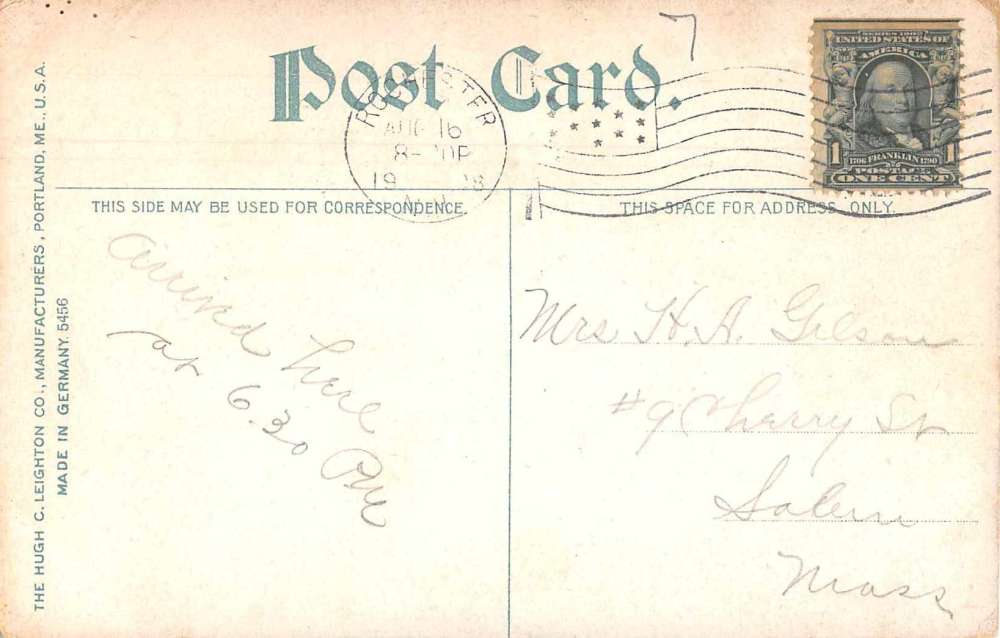 Post Card.
7
ROCHESTER
AUG 16
8-
19 8
N.Y.
SERIES 1902
UNITED STATES OF
AMERICA
1 1
1706 FRANKLIN 1790
POSTAGE
ONE CENT
THIS SIDE MAY BE USED FOR CORRESPONDENCE.
THIS SPACE FOR ADDRESS ONLY.
THE HUGH C. LEIGHTON CO., MANUFACTURERS, PORTLAND, ME., U.S.A.
MADE IN GERMANY. 5456
arrived here
at 6.30 PM
Mrs H. A. Gilson
#9 Cherry St
Salem
Mass